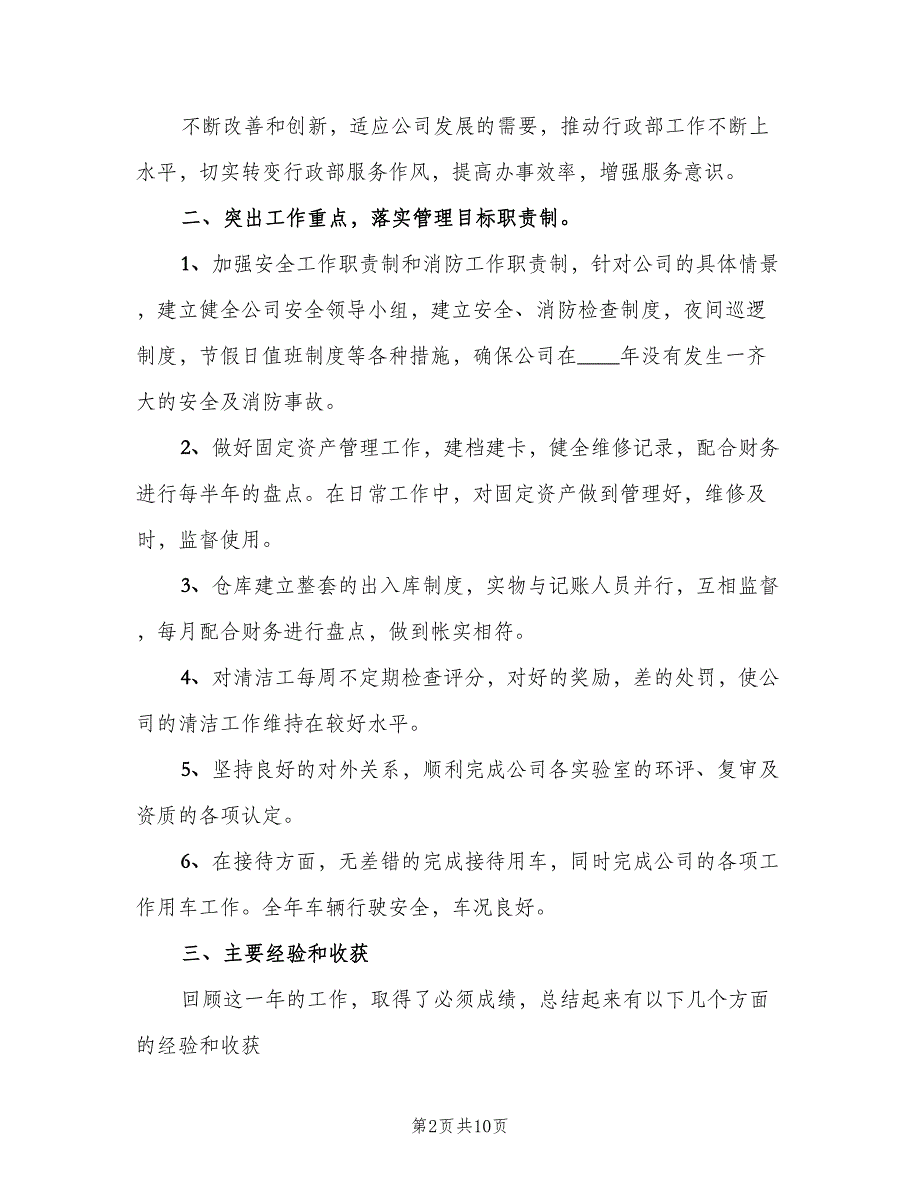 不断改善和创新，适应公司发展的需要，推动行政部工作不断上
水平，切实转变行政部服务作风，提高办事效率，增强服务意识。
二、突出工作重点，落实管理目标职责制。
1、加强安全工作职责制和消防工作职责制，针对公司的具体情景
，建立健全公司安全领导小组，建立安全、消防检查制度，夜间巡逻
制度，节假日值班制度等各种措施，确保公司在____年没有发生一齐
大的安全及消防事故。
2、做好固定资产管理工作，建档建卡，健全维修记录，配合财务
进行每半年的盘点。在日常工作中，对固定资产做到管理好，维修及
时，监督使用。
3、仓库建立整套的出入库制度，实物与记账人员并行，互相监督
，每月配合财务进行盘点，做到帐实相符。
4、对清洁工每周不定期检查评分，对好的奖励，差的处罚，使公
司的清洁工作维持在较好水平。
5、坚持良好的对外关系，顺利完成公司各实验室的环评、复审及
资质的各项认定。
6、在接待方面，无差错的完成接待用车，同时完成公司的各项工
作用车工作。全年车辆行驶安全，车况良好。
三、主要经验和收获
回顾这一年的工作，取得了必须成绩，总结起来有以下几个方面
的经验和收获
第2页共10页